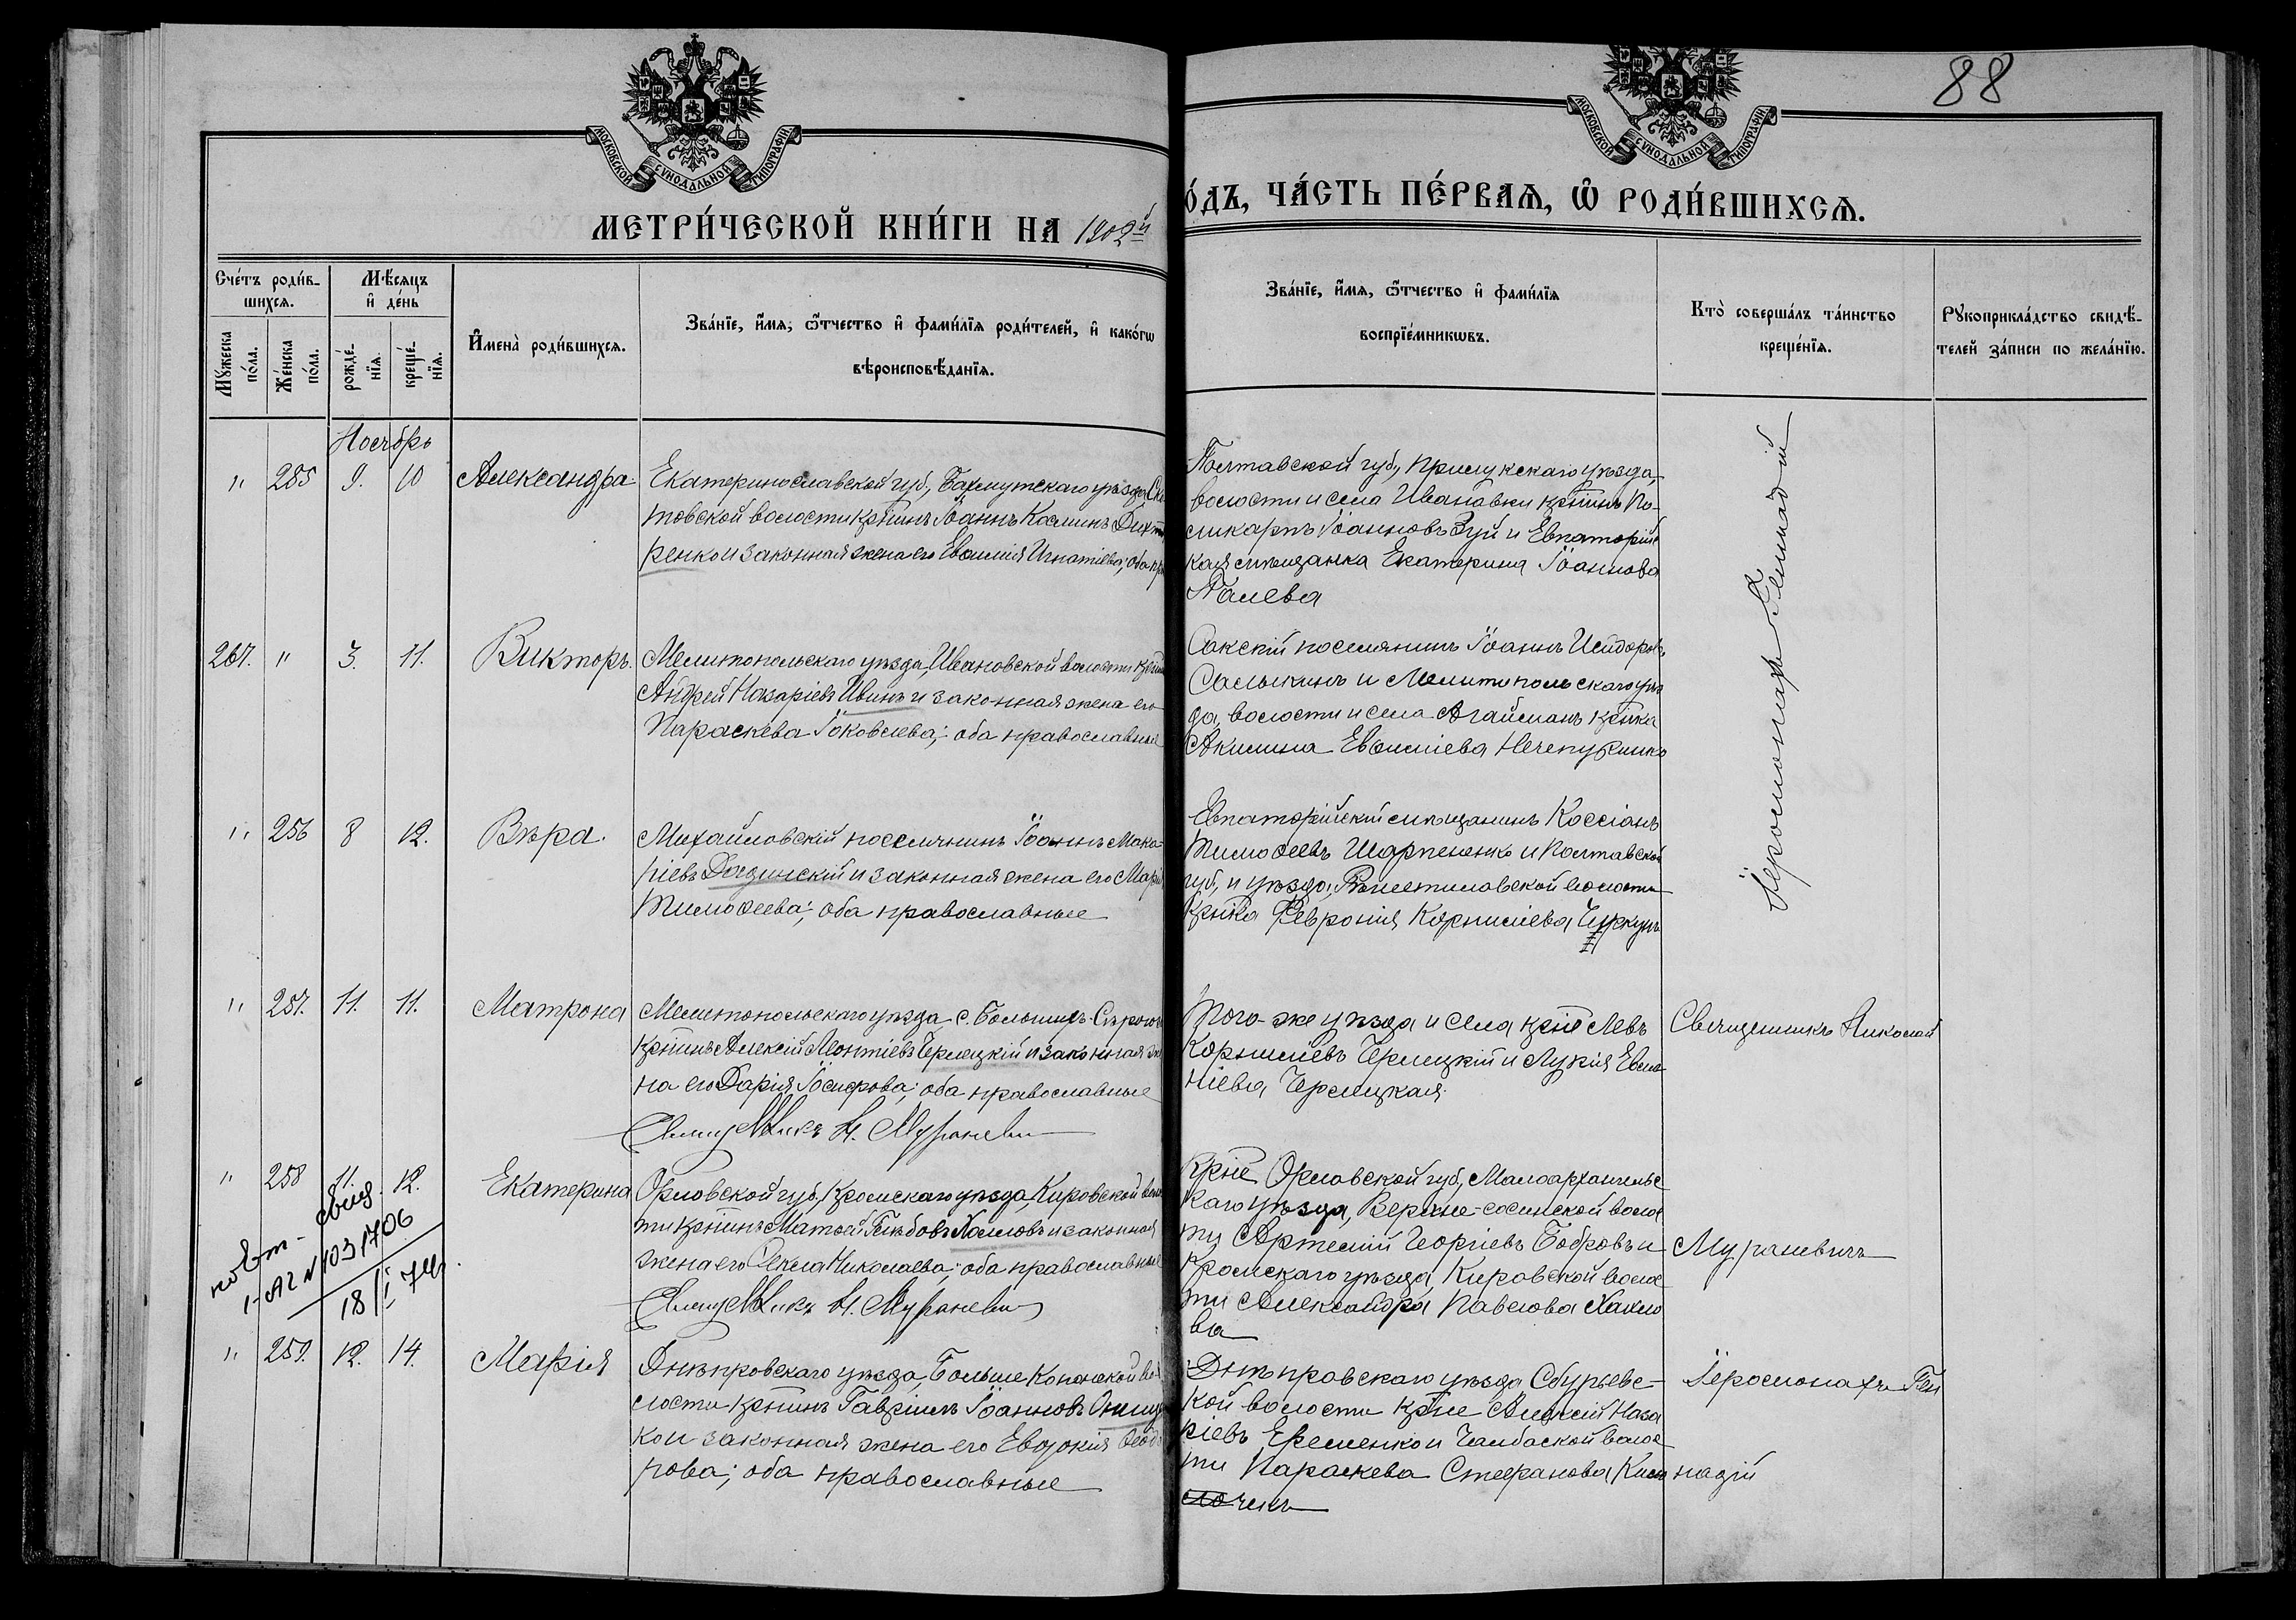 88
МОСКОВСКОЙ СѴНОДАЛЬНОЙ ТИПОГРАФІИ.
МОСКОВСКОЙ СѴНОДАЛЬНОЙ ТИПОГРАФІИ.
МЕТРИ́ЧЕСКОЙ КНИ́ГИ НА 1902й
О́ДЪ, ЧА́СТЬ ПЕ́РВАѦ, Ѡ҆ РОДИ́ВШИХСѦ.
Сче́тъ роди́в-
шихсѧ.
Мꙋ́жеска
по́ла.
Же́нска
по́ла.
Мѣ́сѧцъ
и҆ де́нь
рожде́-
нїѧ.
креще́-
нїѧ.
И҆мена̀ роди́вшихсѧ.
Зва́нїе, и҆́мѧ, ѻ҆́тчество и҆ фами́лїѧ роди́телей, и҆ како́гѡ
вѣроисповѣ́данїѧ.
Зва́нїе, и҆́мѧ, ѻ҆́тчество и҆ фами́лїѧ
воспрїе́мникѡвъ.
Кто̀ соверша́лъ та́инство
креще́нїѧ.
Рꙋкоприкла́дство свидѣ́-
телей за́писи по жела́нїю.
Ноябрь
" 255 9. 10 Александра
Екатеринославской губ., Бахмутскаго уѣзда, Ски
товской волости крнинъ Іоаннъ Косминъ Дихт
ренко и законная жена его Евѳимія Игнатіева; оба пра
Полтавской губ., Прилукскаго уѣзда,
волости и села Ивановки крнинъ По-
ликарпъ Іоанновъ Зуй и Евпаторійс
кая мѣщанка Екатерина Іоаннова
Палева
267. " 3. 11. Викторъ.
Мелитопольскаго уѣзда, Ивановской волости крнинъ
Андрей Назаріевъ Ивинъ и законная жена его
Параскева Іоковлева; оба православные
Сакскій поселянинъ Іоаннъ Исидоровъ
Салыкинъ и Мелитопольскаго уѣз
да, волости и села Агайманъ крнка
Акилина Евѳиміева Нечепуренко
Іеромонахъ Геннадій
" 256 8 12. Вѣра.
Михайловскій поселянинъ Іоаннъ Мака-
ріевъ Дядинскій и законная жена его Марія
Тимоѳеева; оба православные
Евпаторійскій мѣщанинъ Кассіанъ
Тимоѳеевъ Шарпененко и Полтавской
губ. и уѣзда, волости
крнка Февронія Корниліева Чуркунъ
" 257. 11. 11. Матрона
Мелитопольскаго уѣзда, с. Большихъ-Сѣрогозъ
крнинъ Алексій Леонтіевъ Чернецкій и законная же
на его Дарія Іосифова; оба православные
Священникъ Н. Мураневичъ
Того-же уѣзда и села крне Левъ
Корниліевъ Чернецкій и Лукія Евѳи-
міева Чернецкая.
Священникъ Николай
" 258 11. 12. Екатерина
повт-
свид.
I-АГ N 1031706
18/I 74г.
Орловской губ., Кромскаго уѣзда, Кировской волос
ти крнинъ Матѳей Глѣбовъ Хахловъ и законная
жена его Ѳекла Николаева; оба православные
Священникъ Н. Мураневичъ
Крне Орловской губ., Малоархангельс
каго уѣзда, Верхне-сосинской волос
ти Артемій Георгіевъ Бобровъ и
Кромскаго уѣзда, Кировской волос
ти Александра Павлова Хахло
ва
Мураневичъ
" 259. 12. 14. Марія
Днѣпровскаго уѣзда, Больше Копанской во-
лости крнинъ Гавріилъ Іоанновъ Онищ
ко и законная жена его Евдокія Ѳеодо
рова; оба православные
Днѣпровскаго уѣзда Сбурьевс-
кой волости крне Алексій Наза
ріевъ Еременко и Чалбаской волос
ти Параскева Стефанова
Іеромонахъ Ген
надій